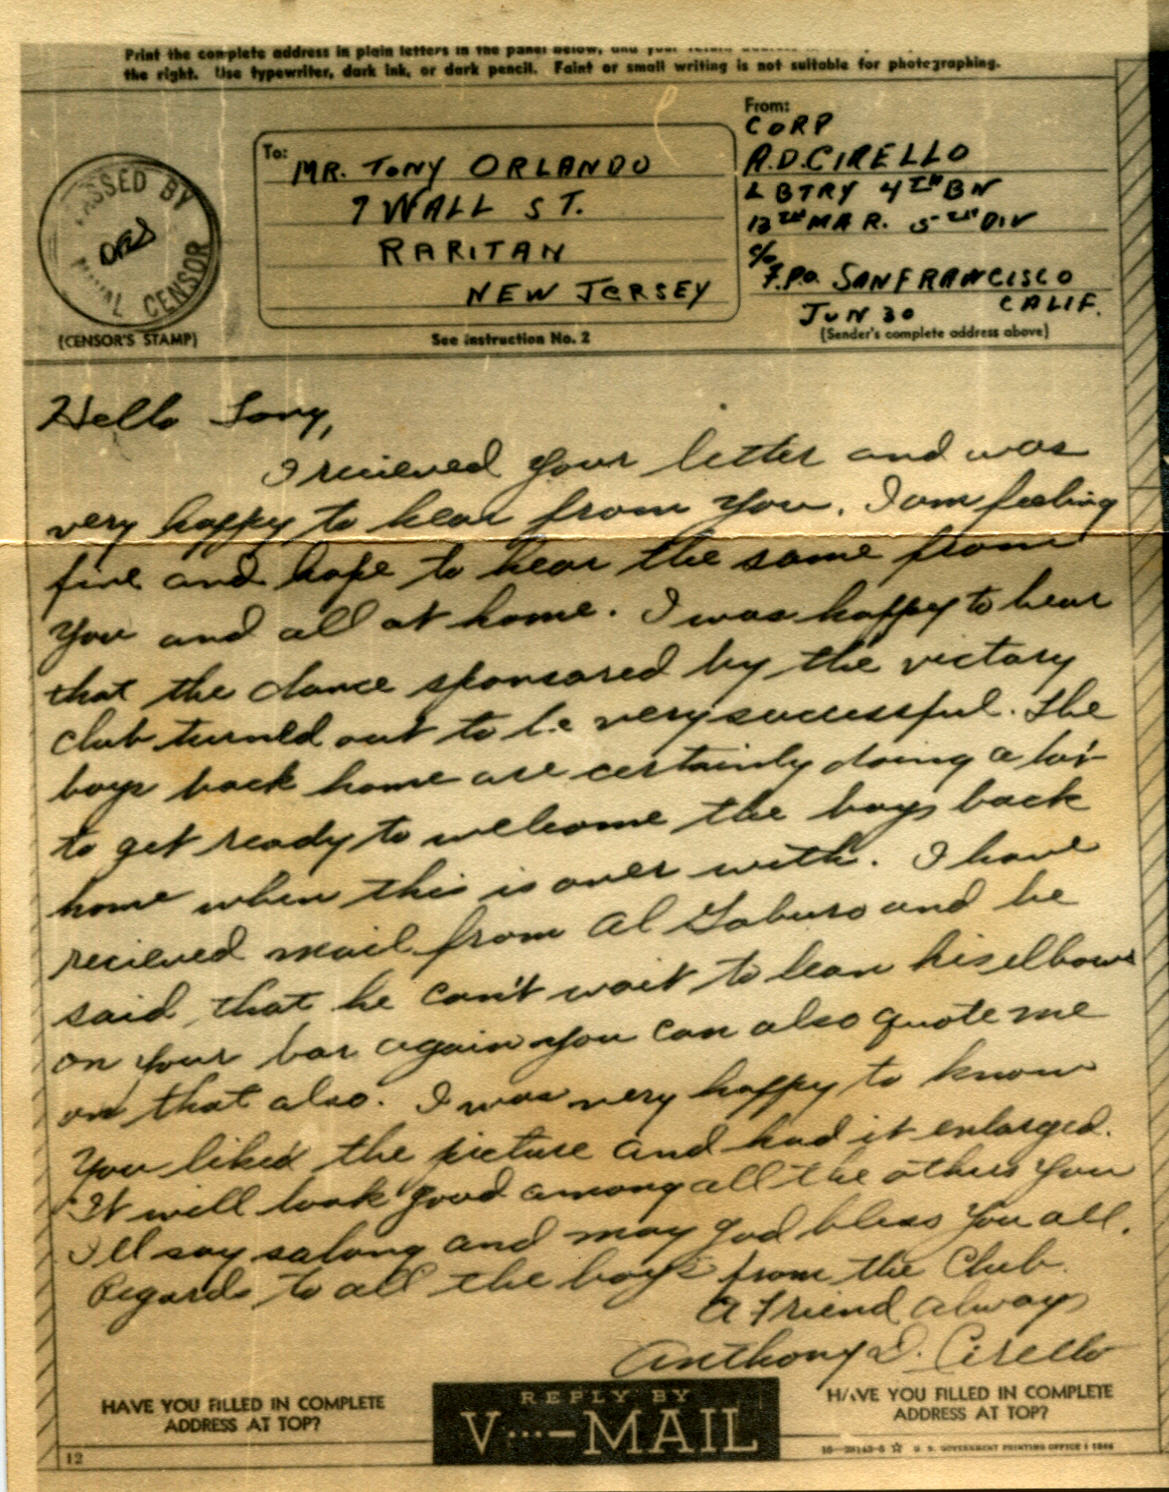 Print the complete address in plain letters in the panel below, and your return address
the right. Use typewriter, dark ink, or dark pencil. Faint or small writing is not suitable for photographing.
PASSED BY
NAVAL CENSOR
(CENSOR'S STAMP)
To:
MR. TONY ORLANDO
7 WALL ST.
RARITAN
NEW JERSEY
See instruction No. 2
From:
CORP
A.D. CIRELLO
L BTRY 4TH BN
13TH MAR. 5TH DIV
c/o
F.P.O. SAN FRANCISCO
CALIF.
JUN 30
(Sender's complete address above)
Hello Tony,
I recieved your letter and was
very happy to hear from you. I am feeling
fine and hope to hear the same from
you and all at home. I was happy to hear
that the dance sponsored by the victory
club turned out to be very successful. The
boys back home are certainly doing a lot
to get ready to welcome the boys back
home when this is over with. I have
recieved mail from Al and he
said, that he can't wait to lean his elbows
on your bar again you can also quote me
on that also. I was very happy to know
you liked the picture and had it enlarged.
It will look good among all the others you
I'll say solong and may god bless you all.
Regards to all the boys from the Club.
A Friend always
Anthony D. Cirello
HAVE YOU FILLED IN COMPLETE
ADDRESS AT TOP?
REPLY BY
V···—MAIL
HAVE YOU FILLED IN COMPLETE
ADDRESS AT TOP?
12
16—28143-5 ☆ U. S. GOVERNMENT PRINTING OFFICE : 1944